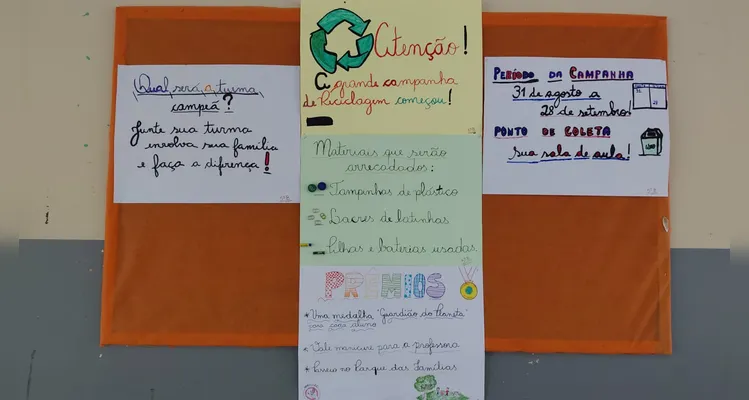 Qual será a turma
campeã?
Junte sua turma
envolva sua família
e faça a diferença!
Atenção!
A grande campanha
de Reciclagem começou!
Materiais que serão
arrecadados:
Tampinhas de plástico
Lacres de latinhas
Pilhas e baterias usadas
PRÊMIOS
* Uma medalha "Guardião do Planeta"
para cada aluno
* Vale manicure para a professora
* Passeio no Parque das Famílias
PERÍODO DA CAMPANHA
31 de agosto a
28 de setembro
PONTO DE COLETA
Sua sala de aula!